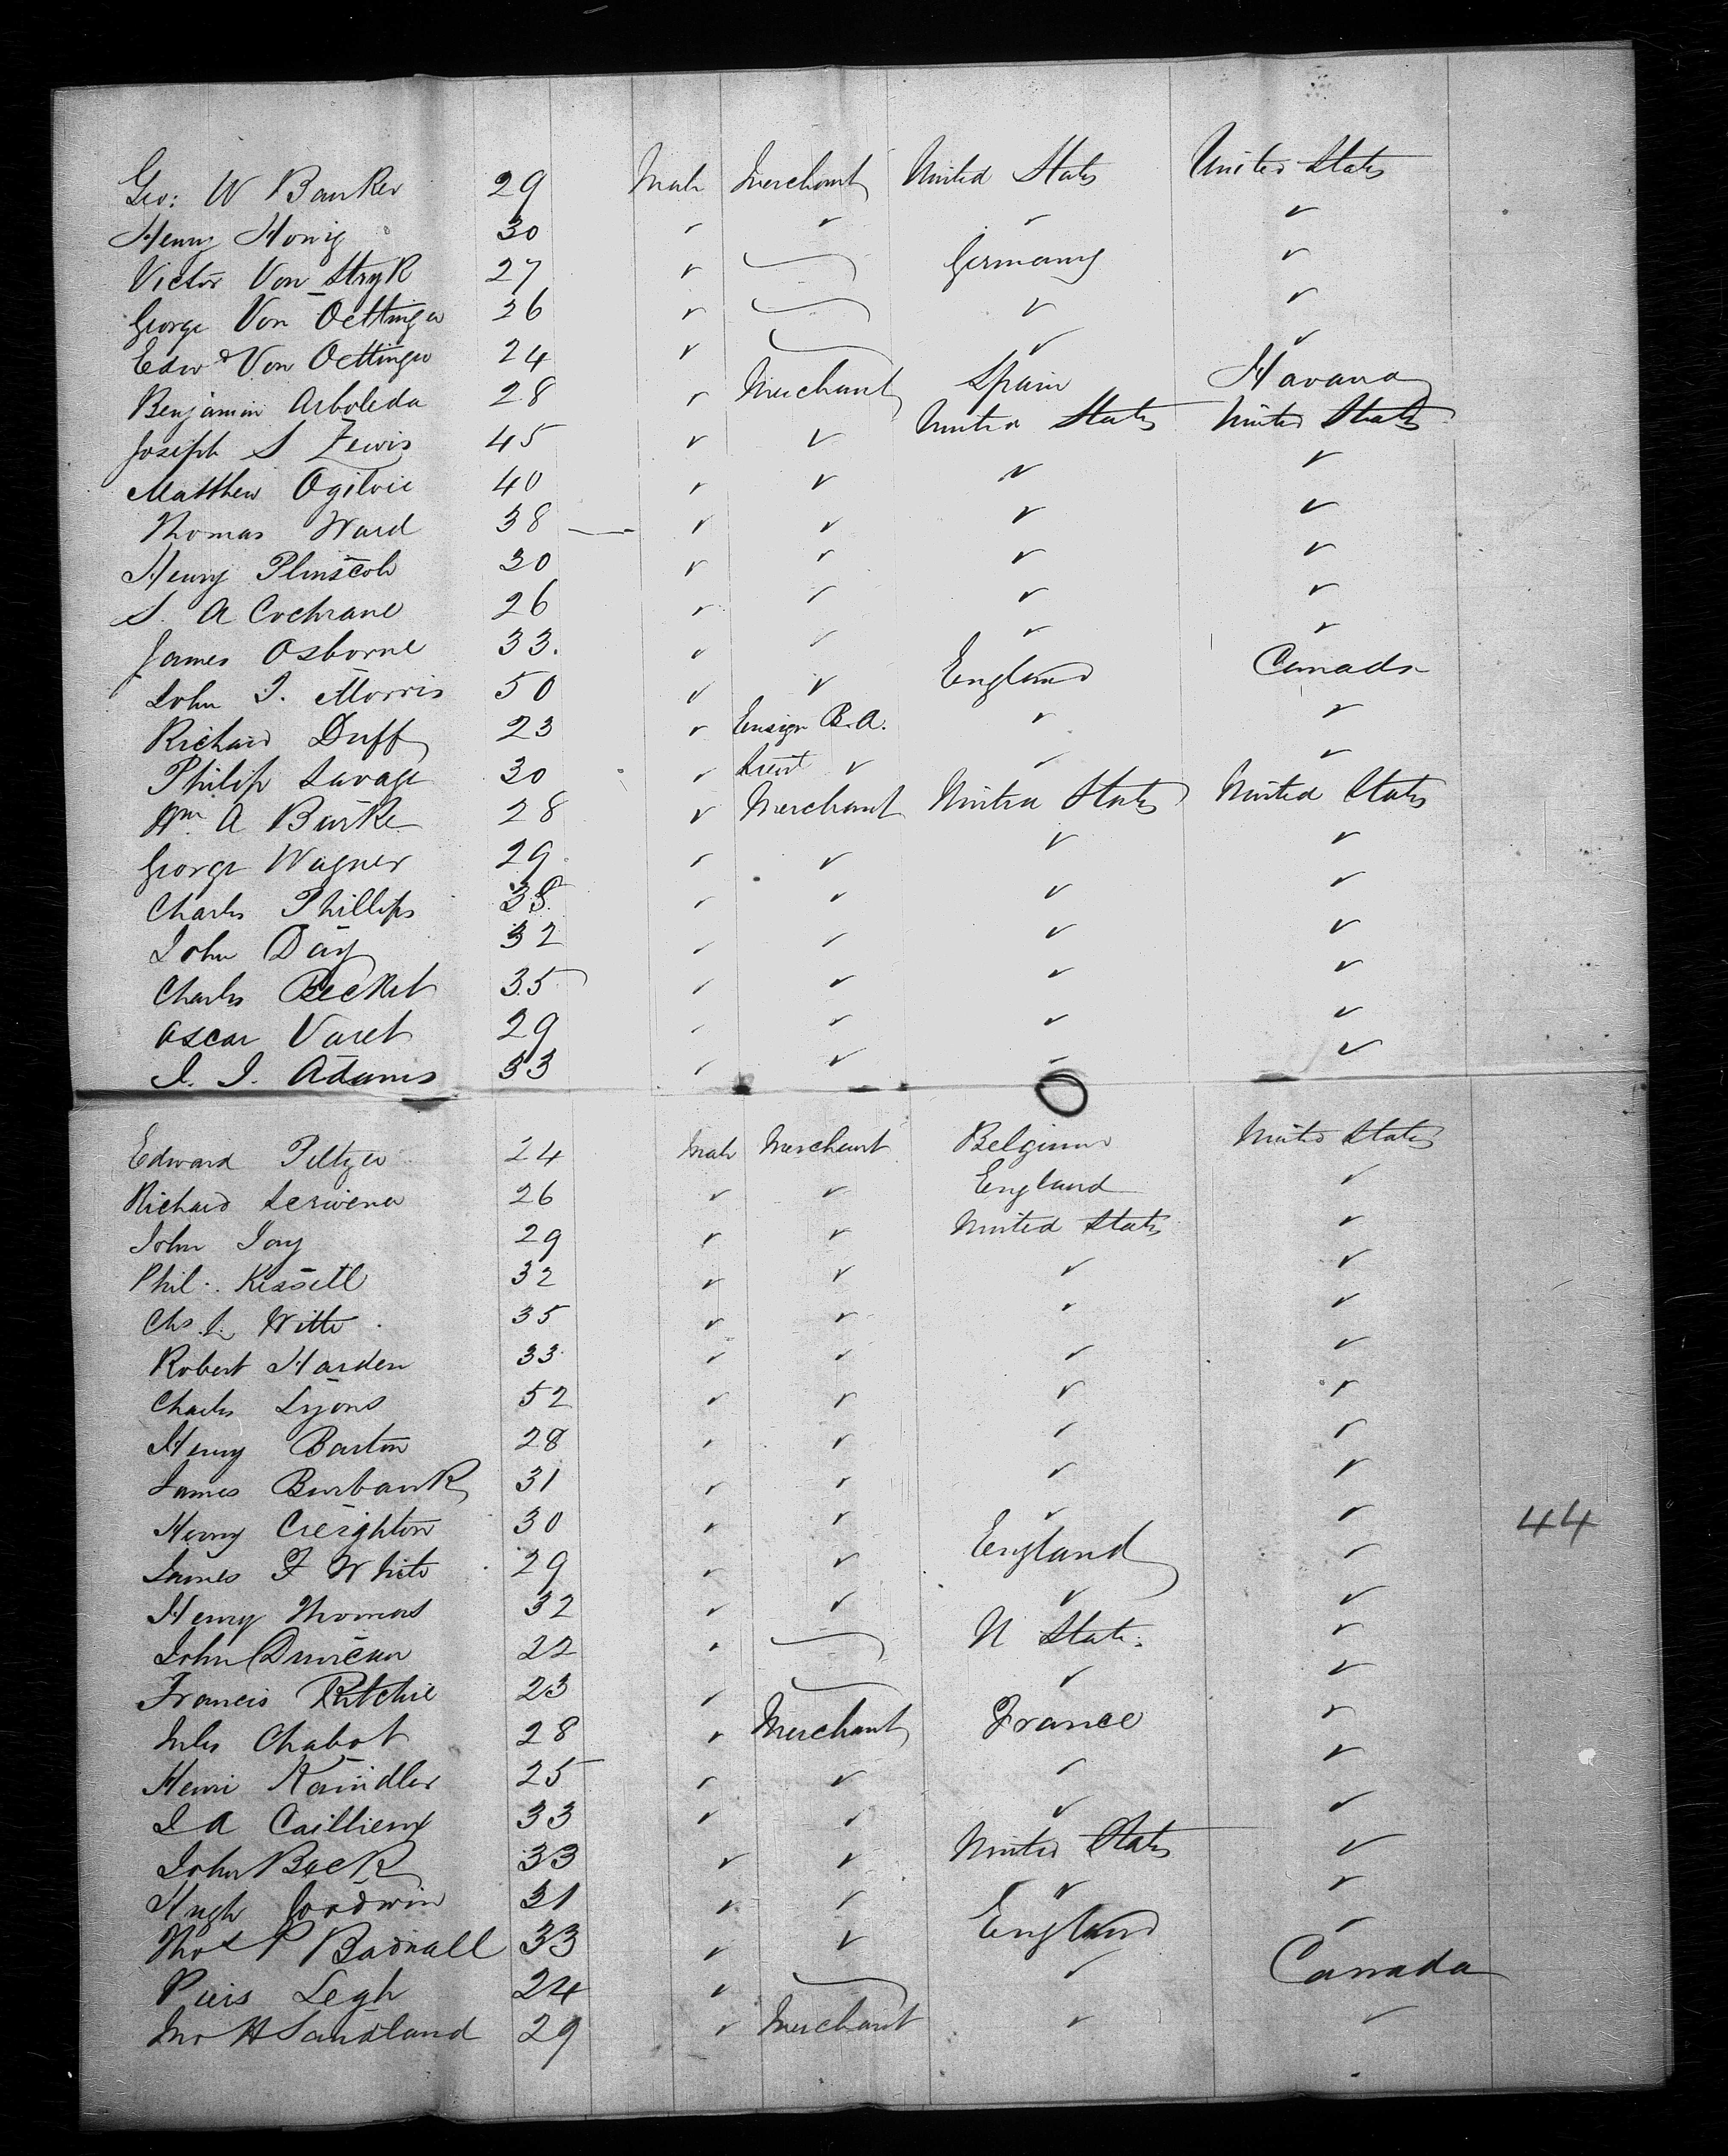 Geo: W Banker 29 Male Merchant United States United States
Henry Honig 30 ✓ ✓ ✓ ✓
Victor Von Stryk 27 ✓ — Germany ✓
George Von Oettinger 26 ✓ — ✓ ✓
Edwd Von Oettinger 24 ✓ — ✓ ✓
Benjamin Arboleda 28 ✓ Merchant Spain Havana
Joseph S Lewis 45 ✓ ✓ United States United States
Matthew Ogilvie 40 ✓ ✓ ✓ ✓
Thomas Ward 38 — ✓ ✓ ✓ ✓
Henry 30 ✓ ✓ ✓ ✓
S. A Cochrane 26 ✓ ✓ ✓ ✓
James Osborne 33. ✓ ✓ ✓ ✓
John J. Morris 50 ✓ ✓ England Canada
Richard Duff 23 ✓ Ensign B.A. ✓ ✓
Philip Savage 30 ✓ Lieut ✓ ✓ ✓
Wm A Burke 28 ✓ Merchant United States United States
George Wagner 29 ✓ ✓ ✓ ✓
Charles Phillips 38 ✓ ✓ ✓ ✓
John Day 32 ✓ ✓ ✓ ✓
Charles Becket 35 ✓ ✓ ✓ ✓
Oscar Varet 29 ✓ ✓ ✓ ✓
J. J. Adams 33 ✓ ✓ ✓ ✓
Edward Peltzer 24 Male Merchant Belgium United States
Richard 26 ✓ ✓ England ✓
John Jay 29 ✓ ✓ United States ✓
Phil. Kissell 32 ✓ ✓ ✓ ✓
Chs. L. Witte 35 ✓ ✓ ✓ ✓
Robert Harden 33 ✓ ✓ ✓ ✓
Charles Lyons 52 ✓ ✓ ✓ ✓
Henry Barton 28 ✓ ✓ ✓ ✓
James Burbank 31 ✓ ✓ ✓ ✓
Henry Creighton 30 ✓ ✓ ✓ ✓ 44
James F White 29 ✓ ✓ England ✓
Henry Thomas 32 ✓ ✓ ✓ ✓
John Duncan 22 ✓ — U States ✓
Francis Ritchie 23 ✓ — ✓ ✓
Jules Chabot 28 ✓ Merchant France ✓
Henri Kaindler 25 ✓ ✓ ✓ ✓
J A Caillieux 33 ✓ ✓ ✓ ✓
John Back 33 ✓ ✓ United States ✓
Hugh Goodwin 31 ✓ ✓ ✓ ✓
Thos P Badnall 33 ✓ ✓ England ✓
Piers Legh 24 ✓ — ✓ Canada
Jno H Sandland 29 ✓ Merchant ✓ ✓